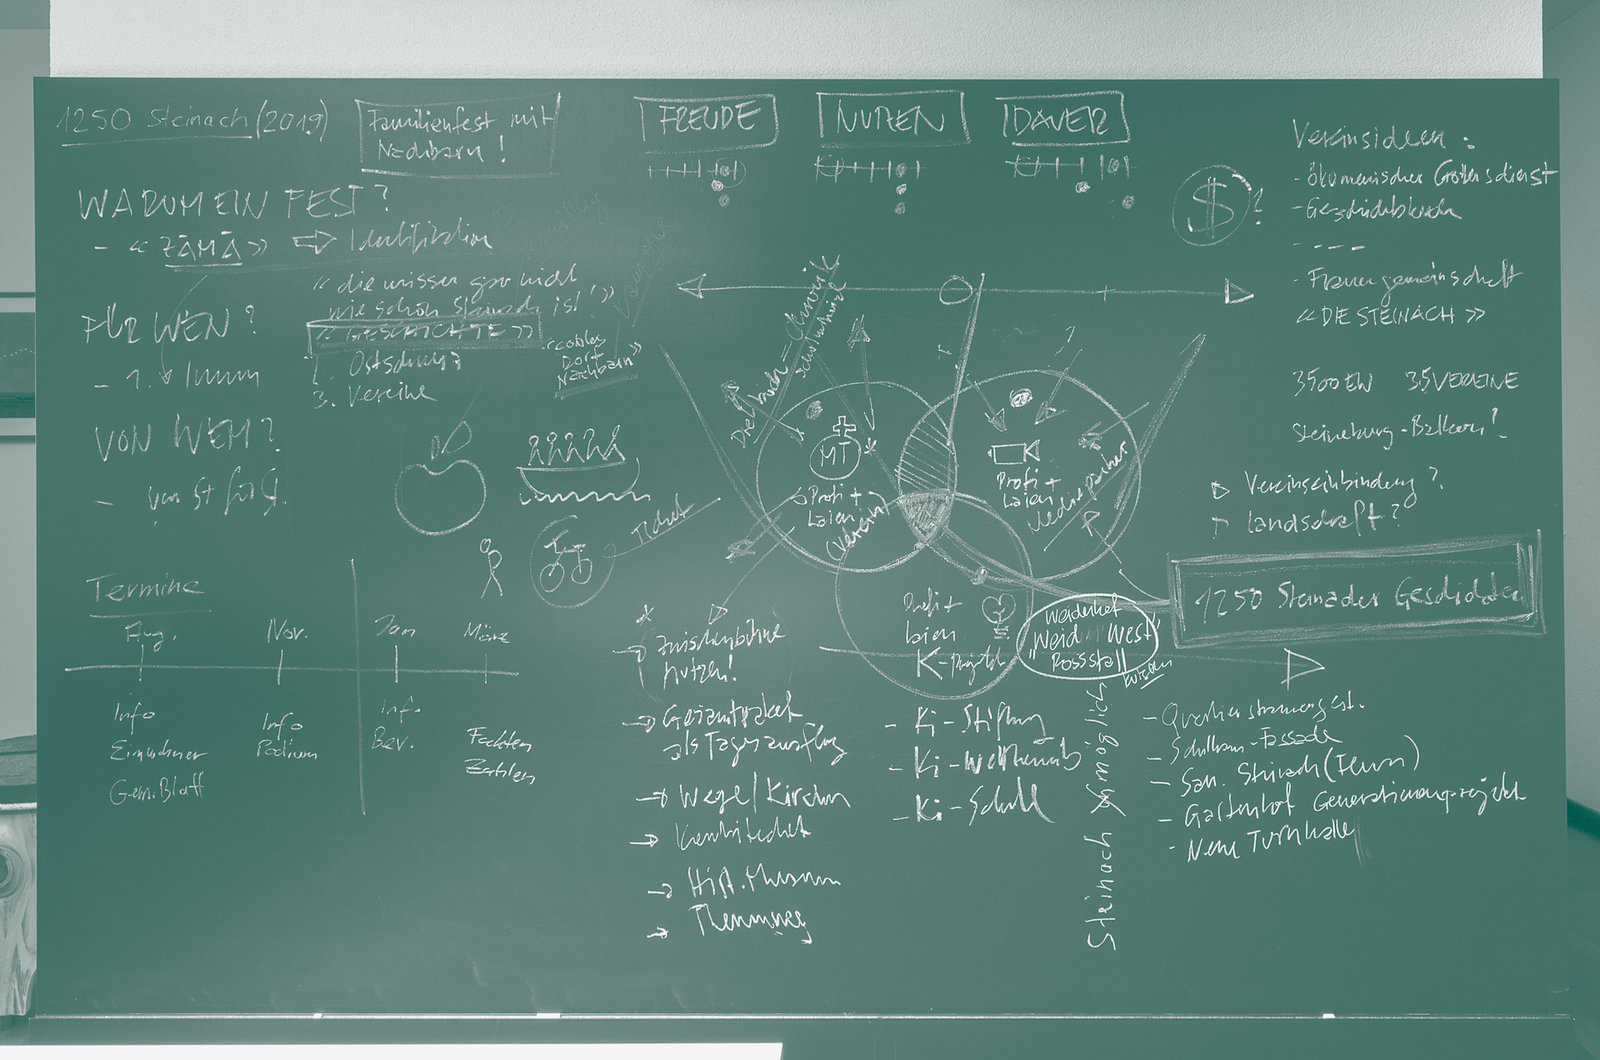 1250 Steinach (2019)
Familienfest mit
Nachbarn!
FREUDE
NUTZEN
DAUER
WARUM EIN FEST?
- «ZÄMÄ» ⇒ Identifikation
"die wissen gar nicht
wie schön Steinach ist!"
«GESCHICHTE»
Ostschweiz
3. Vereine
"cooles
Dorf
Nachbarn"
FÜR WEN?
- 1.
VON WEM?
- von St für G.
Ticket
Termine
Aug.
Nov.
Jan
März
Info
Einwohner
Gem.Blatt
Info
Podium
Inf.
Bev.
Fakten
Zahlen
$?
Vereinsideen:
- Ökumenischer Gottesdienst
- ----
- Frauengemeinschaft
«DIE STEINACH»
3500 EW 35 VEREINE
Steineburg-Balkon!
▷ Vereinseinbindung?
▷ Landschaft?
1250 Steinacher Geschichten
MT
Profi +
Laien
(Verein)
Profi +
Laien
Medienpartner
Profi +
Laien
K-Projekt
Weiderhof
"Weid West"
Rossstall
*
→ Zwischenbühne
nutzen!
→ Gesamtpaket
als Tagesausflug
→ Wege/Kirchen
→ Kombiticket
→ Hist. Museum
→ Themenweg
- Ki-Stiftung
- Ki-Wettbewerb
- Ki-Schule
Steinach
- Quartierstrassengest.
- Schulhaus-Fassade
- San. Steinach (Fluss)
- Gartenhof Generationenprojekt
- Neue Turnhalle